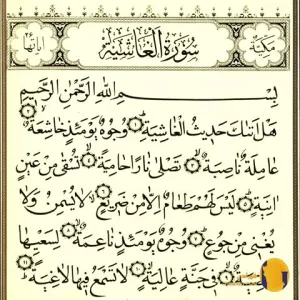 مكية سورة الغاشية آياتها ٢٦
بسم الله الرحمن الرحيم
هَلْ أَتَىٰكَ حَدِيثُ الْغَاشِيَةِ ۝١ وُجُوهٌ يَوْمَئِذٍ خَاشِعَةٌ ۝٢
عَامِلَةٌ نَاصِبَةٌ ۝٣ تَصْلَىٰ نَارًا حَامِيَةً ۝٤ تُسْقَىٰ مِنْ عَيْنٍ
اٰنِيَةٍ ۝٥ لَيْسَ لَهُمْ طَعَامٌ إِلَّا مِنْ ضَرِيعٍ ۝٦ لَا يُسْمِنُ وَلَا
يُغْنِي مِنْ جُوعٍ ۝٧ وُجُوهٌ يَوْمَئِذٍ نَاعِمَةٌ ۝٨ لِسَعْيِهَا
رَاضِيَةٌ ۝٩ فِي جَنَّةٍ عَالِيَةٍ ۝١٠ لَا تَسْمَعُ فِيهَا لَاغِيَةً ۝١١